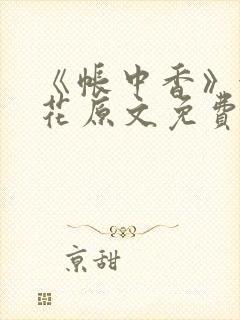 《帐中香》
花原文免費
京甜